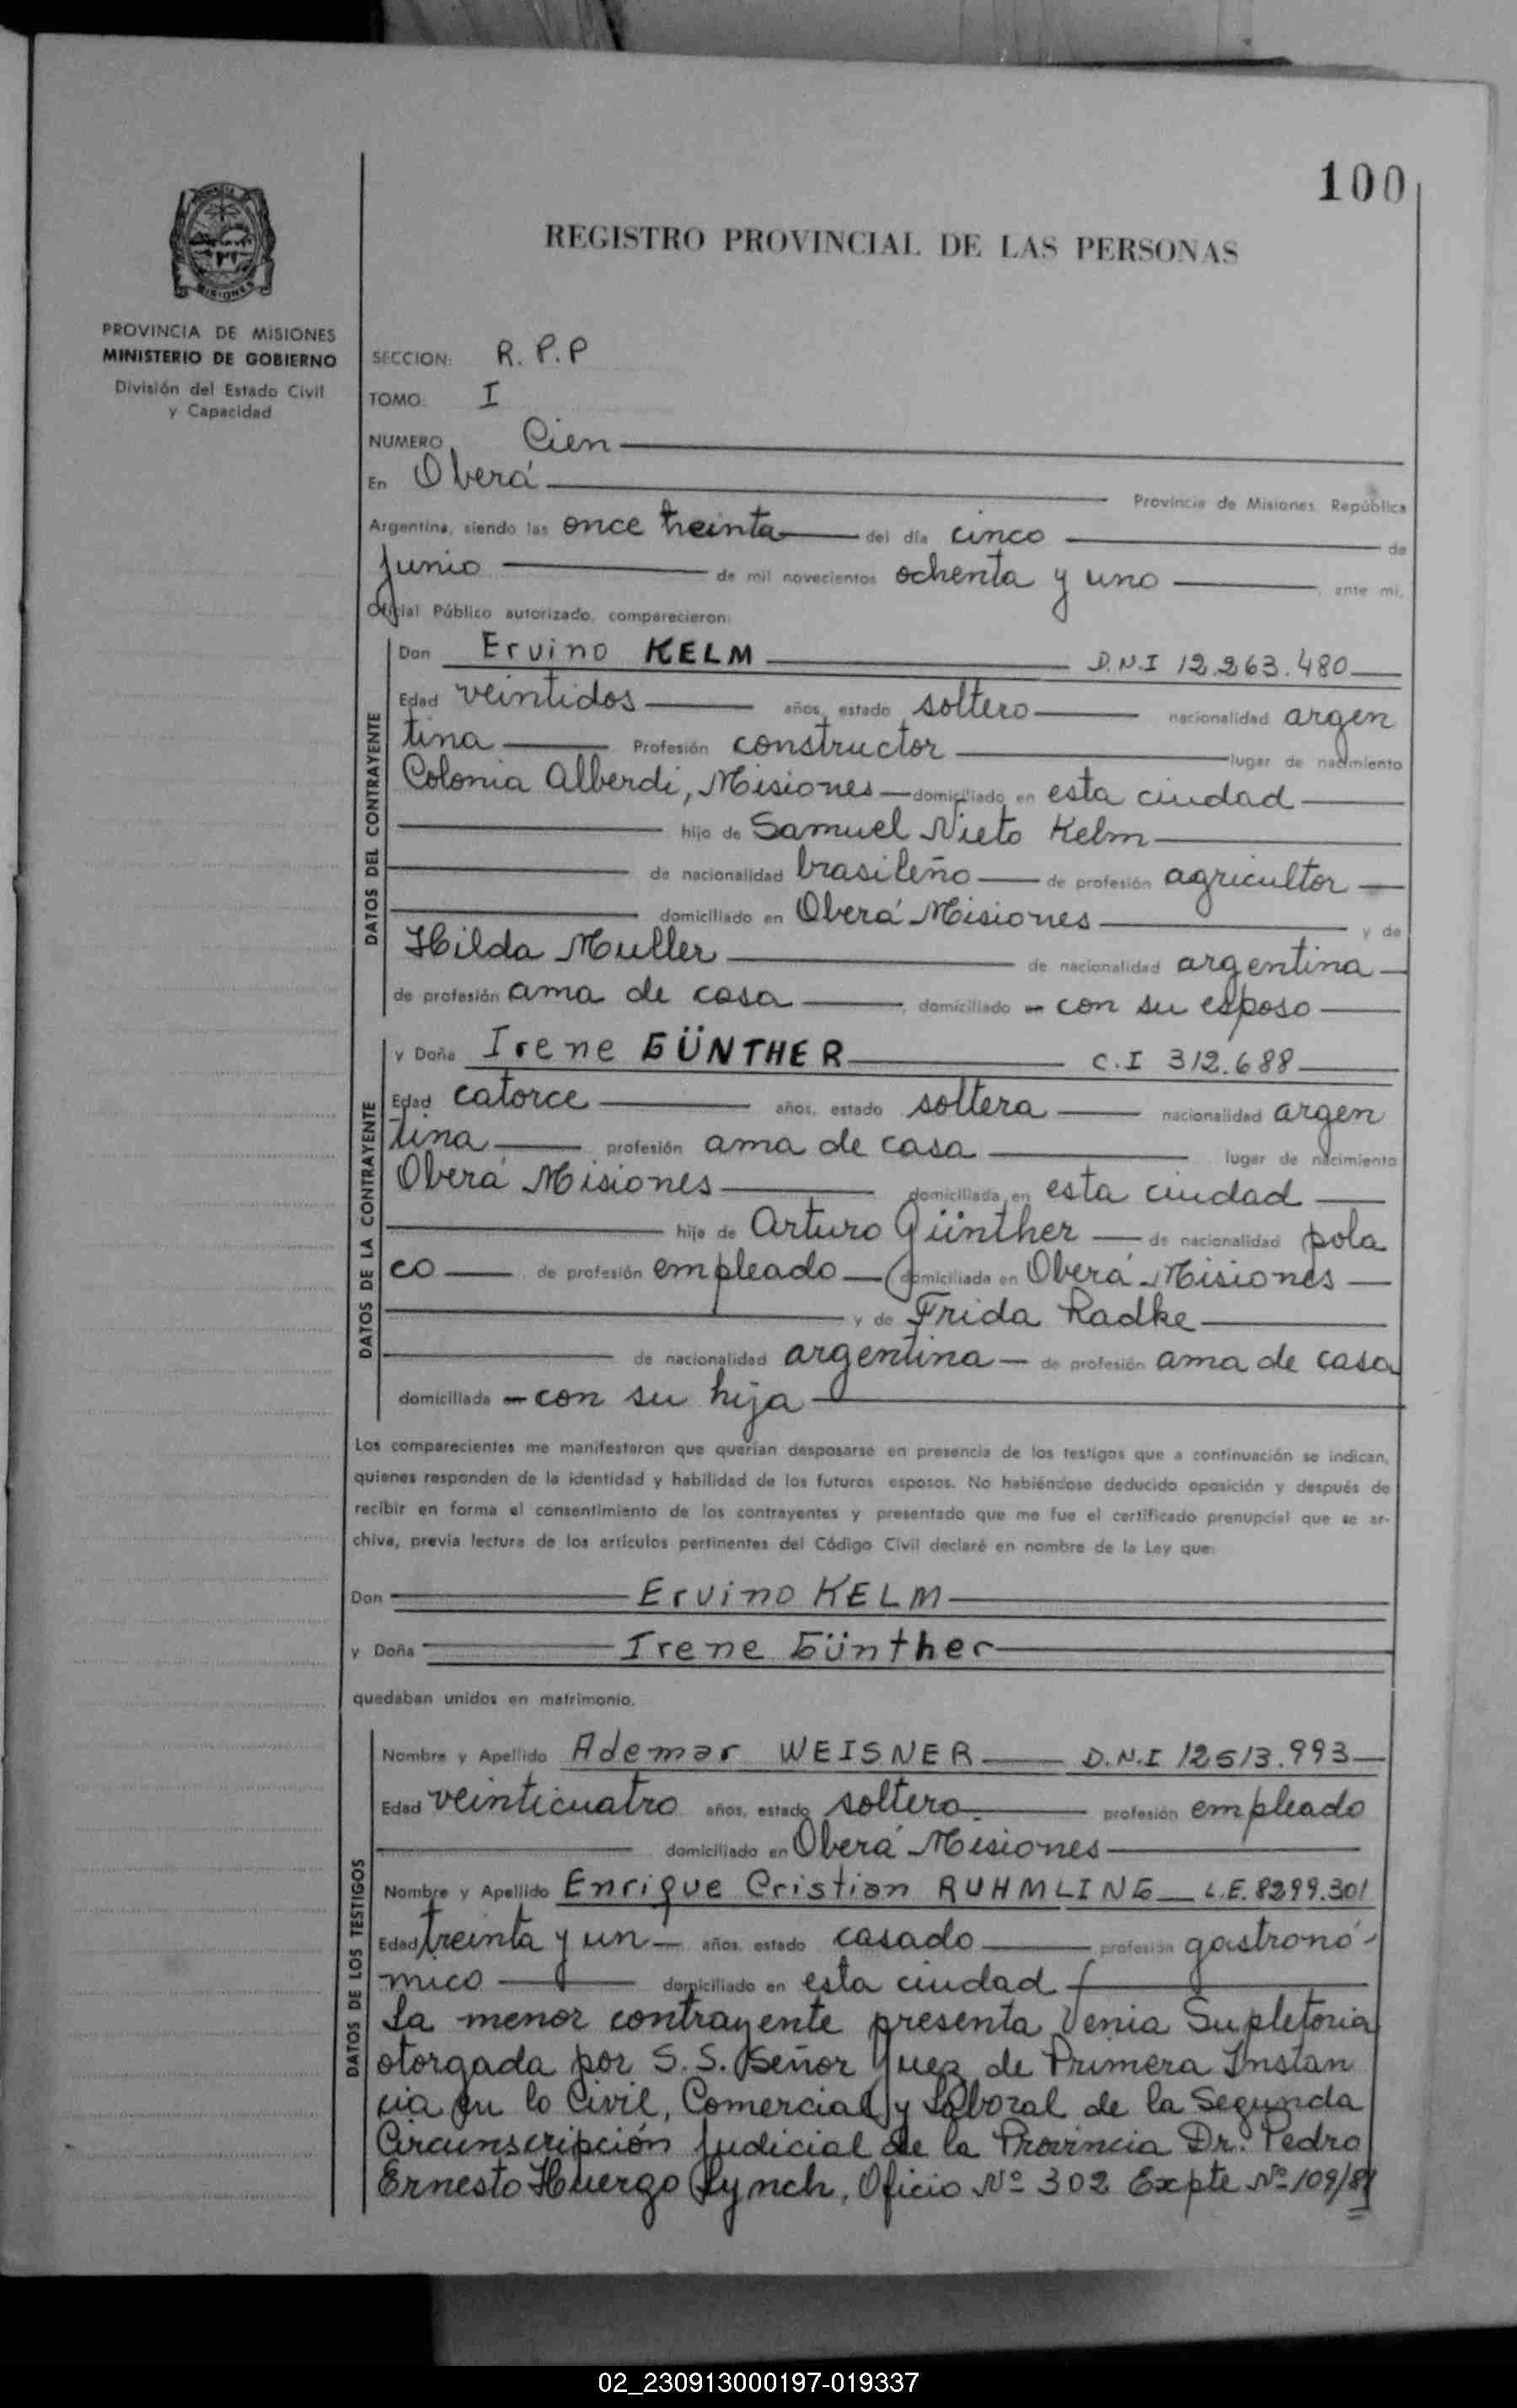 100
REGISTRO PROVINCIAL DE LAS PERSONAS
MISIONES
PROVINCIA DE MISIONES
MINISTERIO DE GOBIERNO
División del Estado Civil
y Capacidad
SECCION: R. P. P
TOMO: I
NUMERO Cien
En Oberá Provincia de Misiones, República
Argentina, siendo las once treinta del día cinco de
Junio de mil novecientos ochenta y uno, ante mi,
Oficial Público autorizado, comparecieron:
DATOS DEL CONTRAYENTE
Don Ervino KELM D.N.I 12.263.480
Edad veintidos años, estado soltero nacionalidad argen
tina Profesión constructor lugar de nacimiento
Colonia Alberdi, Misiones domiciliado en esta ciudad
hijo de Samuel Nieto Kelm
de nacionalidad brasileño de profesión agricultor
domiciliado en Oberá Misiones y de
Hilda Muller de nacionalidad argentina
de profesión ama de casa, domiciliado con su esposo
DATOS DE LA CONTRAYENTE
y Doña Irene GÜNTHER C.I 312.688
Edad catorce años, estado soltera nacionalidad argen
tina profesión ama de casa lugar de nacimiento
Oberá Misiones domiciliada en esta ciudad
hija de Arturo Günther de nacionalidad pola
co de profesión empleado domiciliado en Oberá Misiones
y de Frida Radke
de nacionalidad argentina de profesión ama de casa
domiciliada con su hija
Los comparecientes me manifestaron que querían desposarse en presencia de los testigos que a continuación se indican,
quienes responden de la identidad y habilidad de los futuros esposos. No habiéndose deducido oposición y después de
recibir en forma el consentimiento de los contrayentes y presentado que me fue el certificado prenupcial que se ar-
chiva, previa lectura de los artículos pertinentes del Código Civil declaré en nombre de la Ley que:
Don Ervino KELM
y Doña Irene Günther
quedaban unidos en matrimonio.
DATOS DE LOS TESTIGOS
Nombre y Apellido Ademar WEISNER D.N.I 12513.993
Edad veinticuatro años, estado soltero profesión empleado
domiciliado en Oberá Misiones
Nombre y Apellido Enrique Cristian RUHMLING L.E. 8299.301
Edad treinta y un años, estado casado profesión gastronó-
mico domiciliado en esta ciudad
La menor contrayente presenta Venia Supletoria
otorgada por S. S. Señor Juez de Primera Instan
cia en lo Civil, Comercial y Laboral de la Segunda
Circunscripción Judicial de la Provincia Dr. Pedro
Ernesto Huergo Lynch, Oficio Nº 302 Expte Nº 109/81
02_230913000197-019337